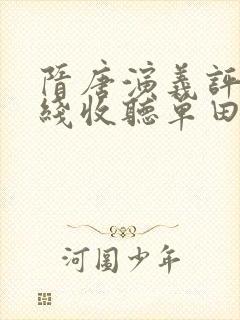 隋唐演義評
綫收聽單田
河圖少年